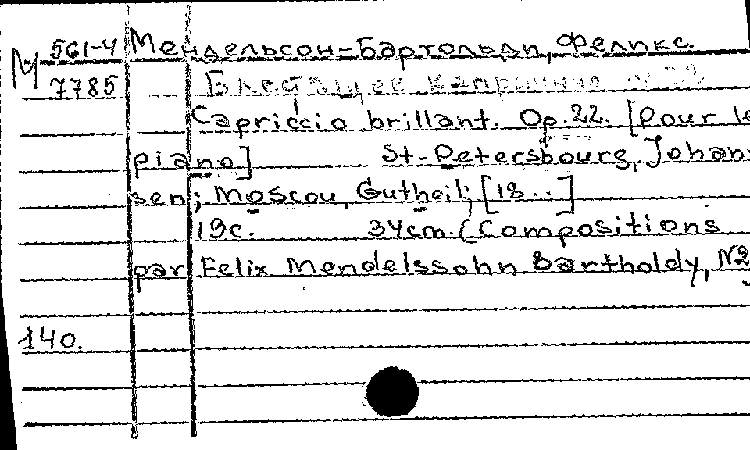 М 561-4 Мендельсон-Бартольди, Феликс.
7785 Блестящее каприччио
Capriccio brillant. Op. 22. [Pour le
piano] St-Petersbourg, Johan
sen; Moscou, Gutheil; [18..]
19c. 34cm (Compositions
par Felix Mendelssohn Bartholdy, N2
140.